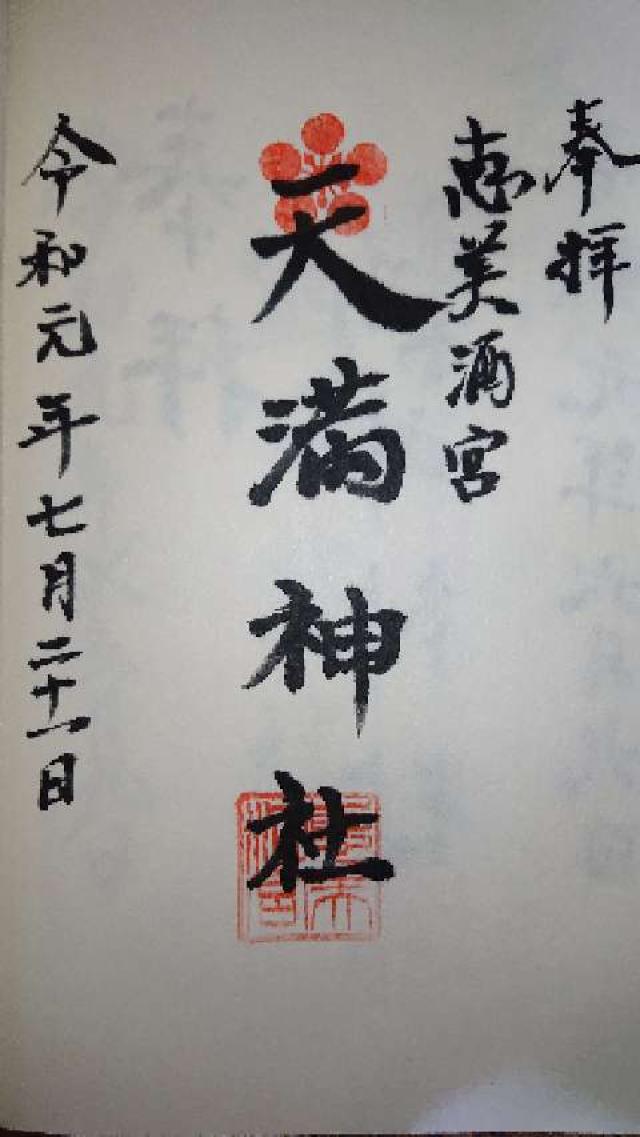 奉拝
恵美酒宮
天満神社
令和元年七月二十一日